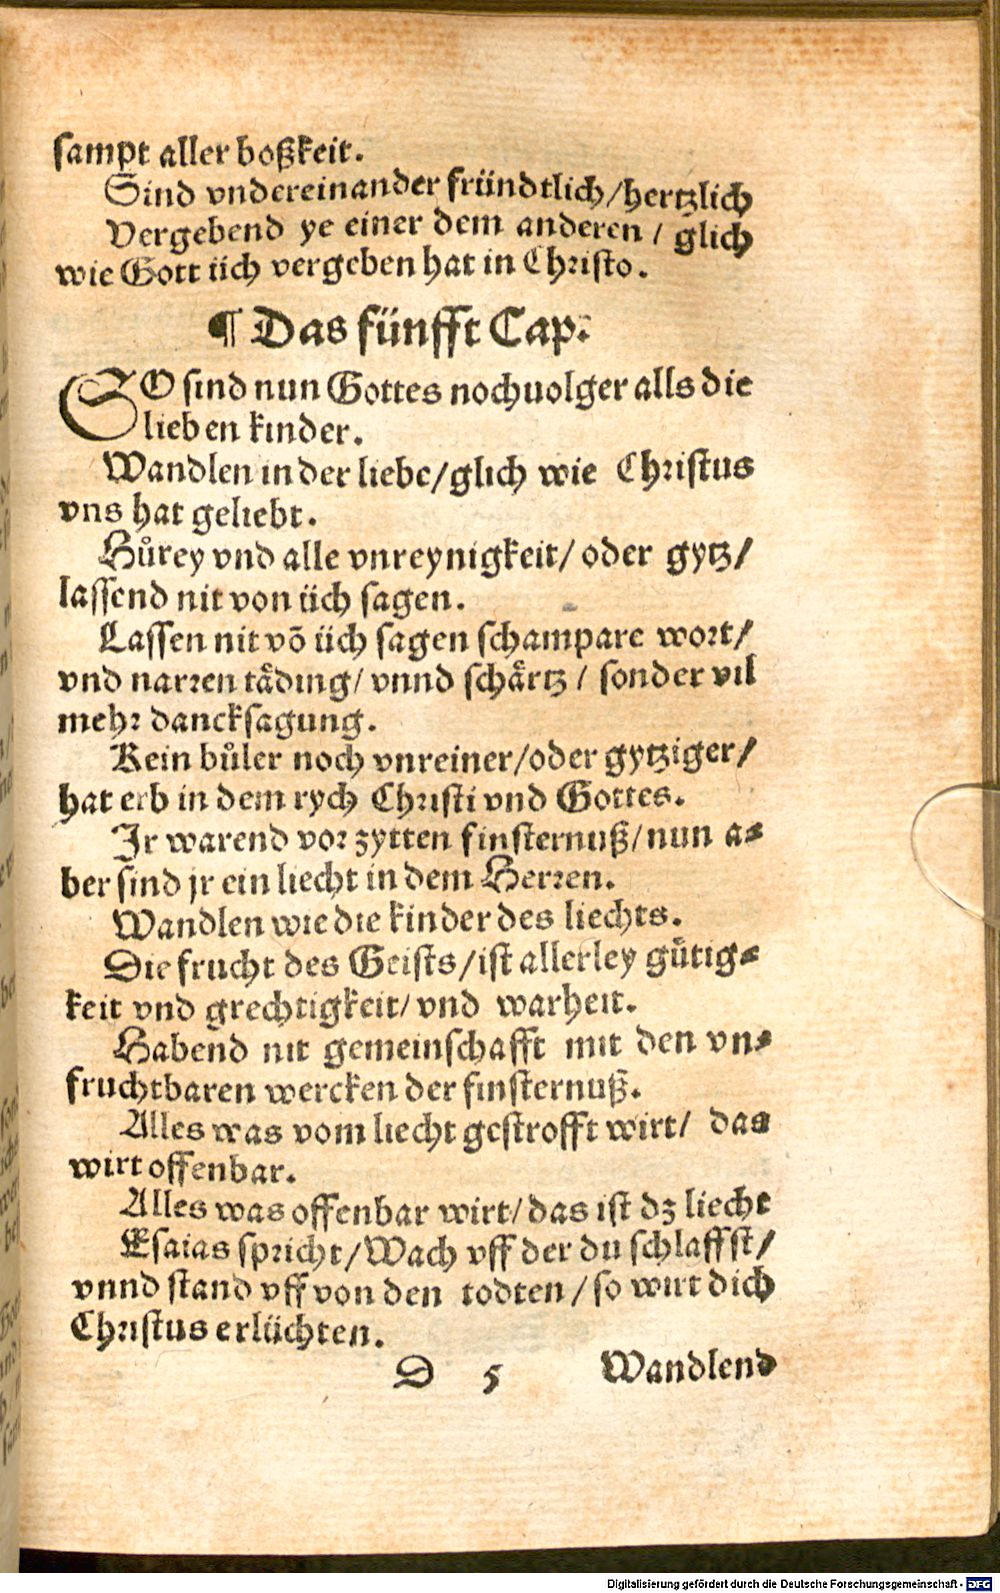 sampt aller boßkeit.
Sind vndereinander fründtlich/hertzlich
Vergebend ye einer dem anderen / glich
wie Gott üch vergeben hat in Christo.
¶ Das fünfft Cap.
SO sind nun Gottes nochuolger alls die
lieben kinder.
Wandlen in der liebe/glich wie Christus
vns hat geliebt.
Hůrey vnd alle vnreynigkeit/ oder gytz/
lassend nit von üch sagen.
Lassen nit võ üch sagen schampare wort/
vnd narren täding/ vnnd schärtz / sonder vil
mehr dancksagung.
Kein bůler noch vnreiner/oder gytziger/
hat erb in dem rych Christi vnd Gottes.
Jr warend vor zytten finsternuß/nun a⸗
ber sind jr ein liecht in dem Herren.
Wandlen wie die kinder des liechts.
Die frucht des Geists/ist allerley gütig⸗
keit vnd grechtigkeit/ vnd warheit.
Habend nit gemeinschafft mit den vn⸗
fruchtbaren wercken der finsternuß.
Alles was vom liecht gestrofft wirt/ das
wirt offenbar.
Alles was offenbar wirt/das ist dz liecht
Esaias spricht/Wach vff der du schlaffst/
vnnd stand vff von den todten / so wirt dich
Christus erlüchten.
D 5 Wandlend
Digitalisierung gefördert durch die Deutsche Forschungsgemeinschaft - DFG